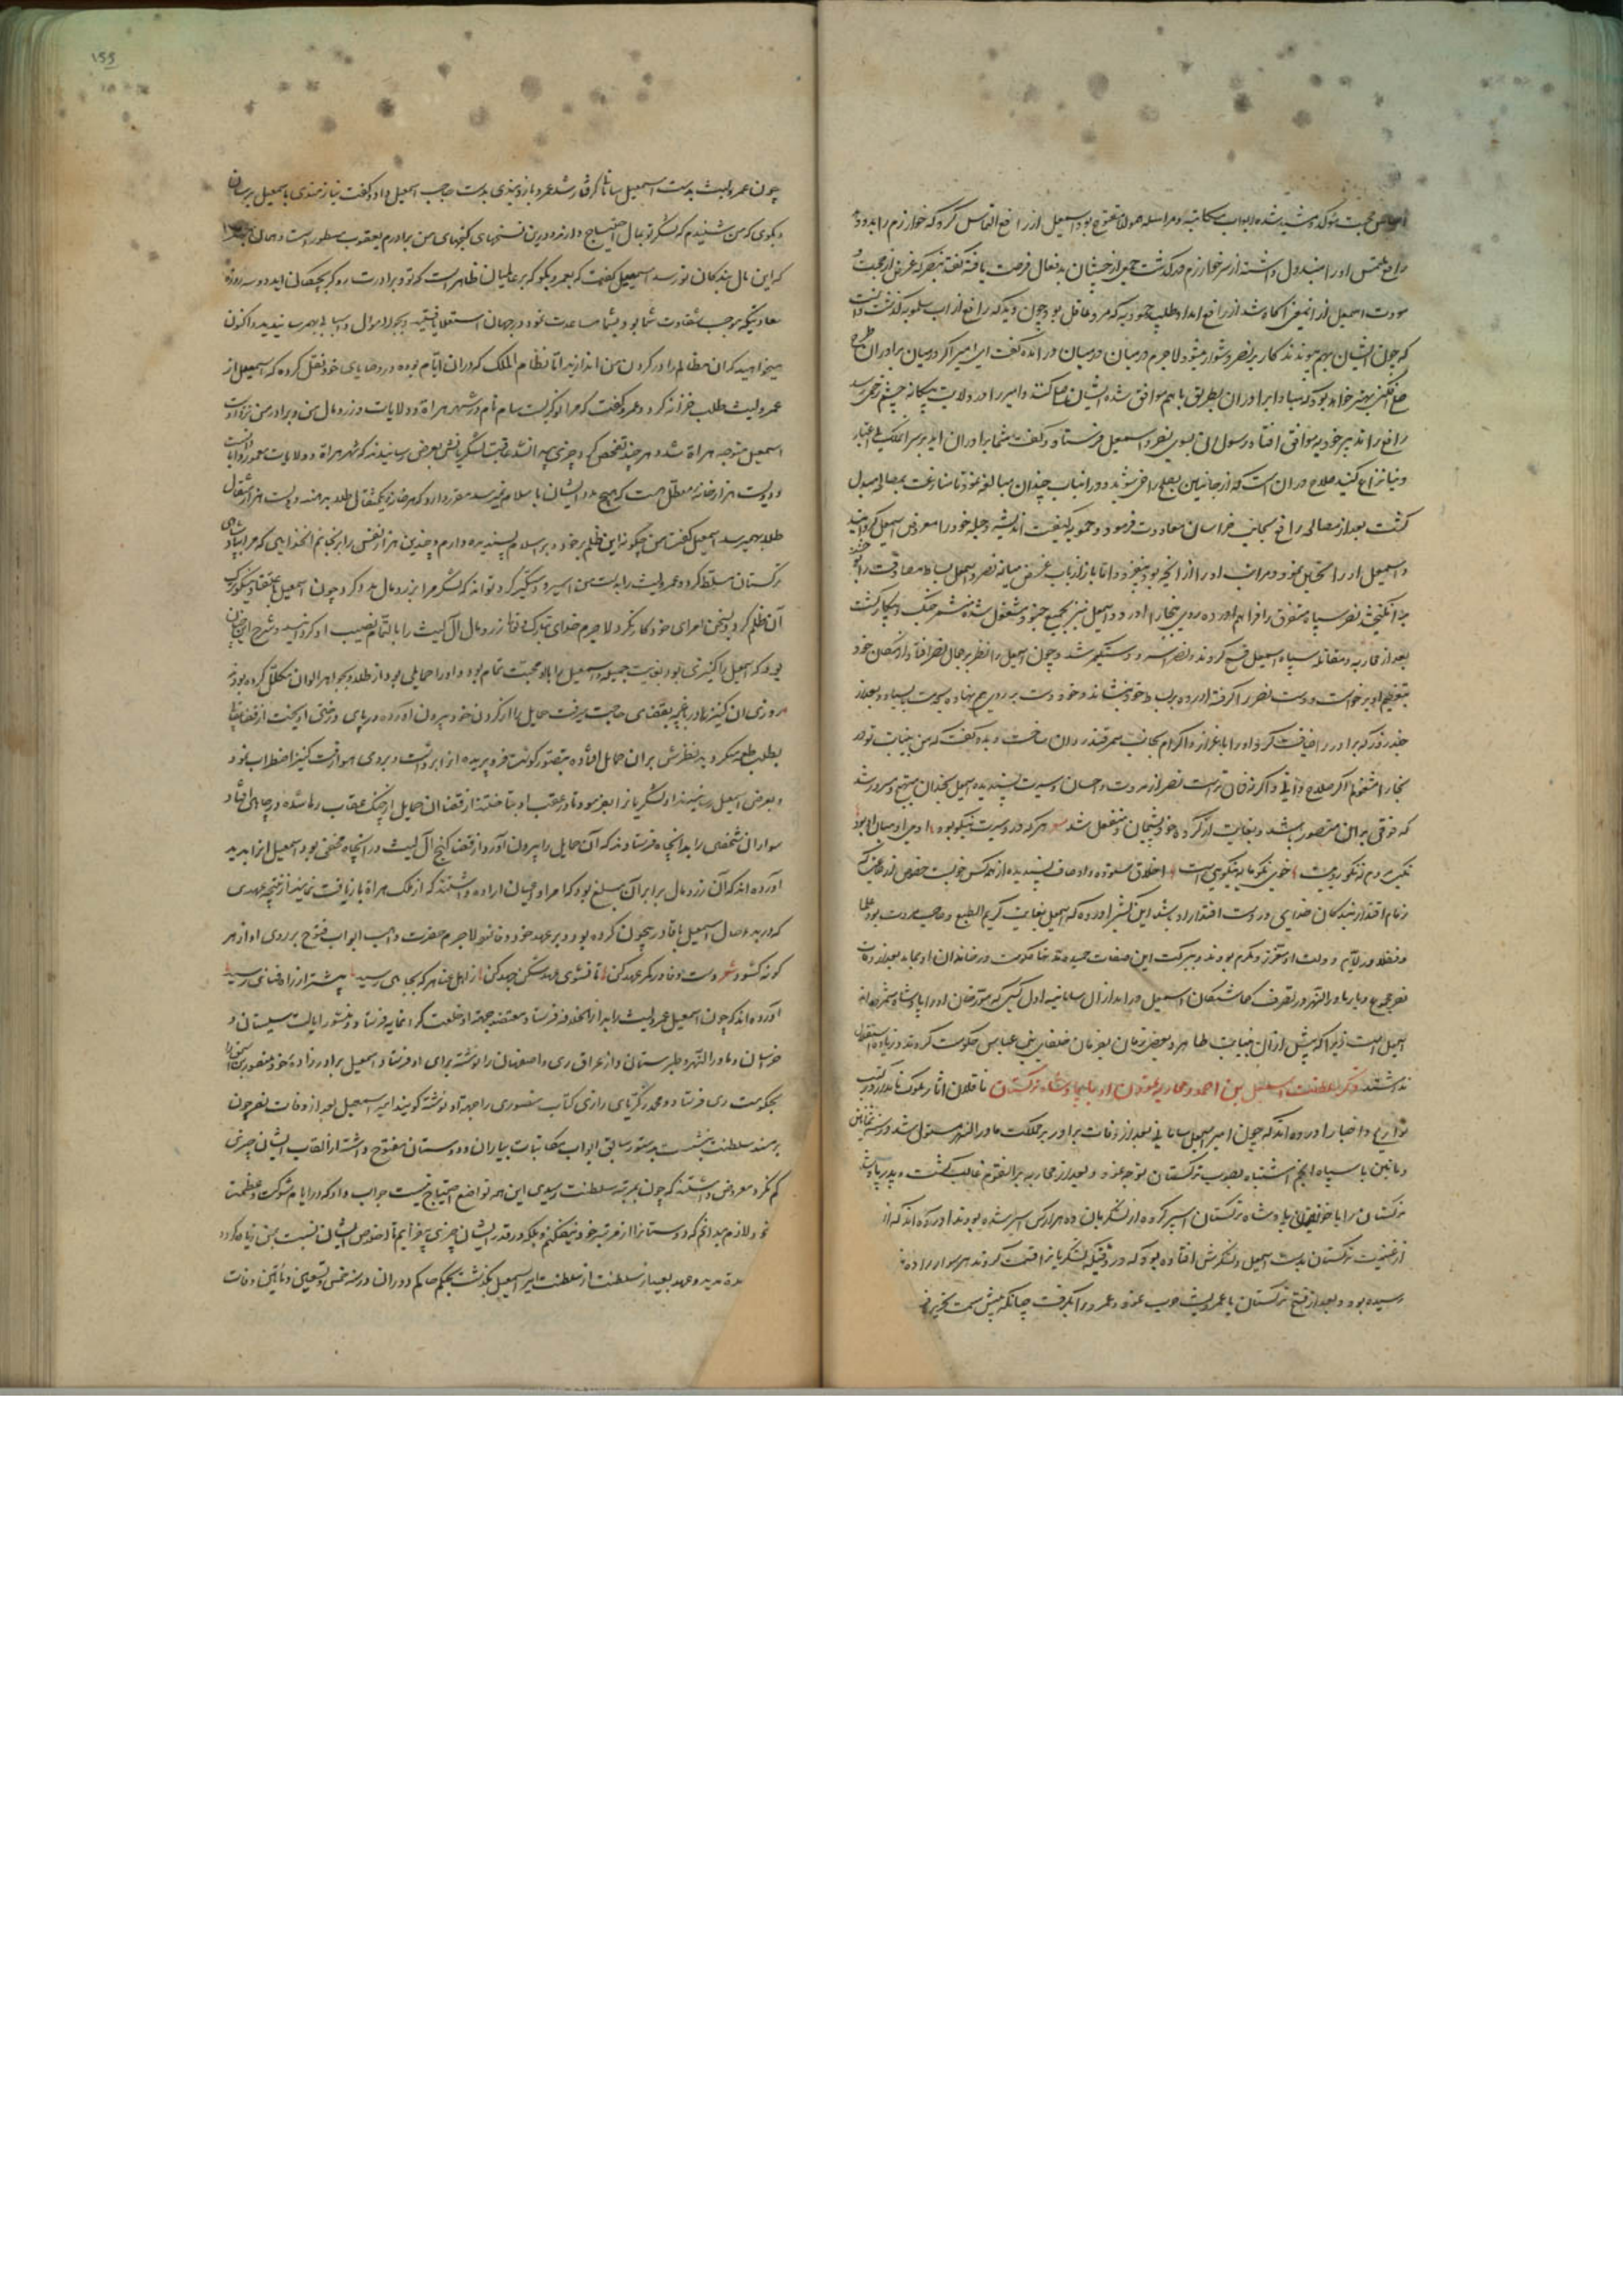 اساس محبت مؤکد و مشید شده ابواب مکاتبه و مراسله مفتوح بود اسمعیل از رافع التماس کرد که خوارزم را بدو دهد
رافع ملتمس او را مبذول داشته از سر خوارزم درگذشت جمعی فرصت یافته گفتند نصر که غرض از محبت و
مودت اسمعیل آگاه شد از رافع امداد طلبید حمویه که مرد عاقل بود چون دید که رافع از آب بگذشت دانست
که چون ایشان بهم پیوندند کار بر نصر دشوار میشود لاجرم در میان گفت ای امیر اگر در میان برادران طرح
صلح افکنی بهتر خواهد بود که مبادا برادران بطریقی باهم موافق شده و امیر را در ولایت بیگانه چشم زخمی رسد
رافع را تدبیر حمویه موافق افتاد رسولان بسوی نصر و اسمعیل فرستاد و گفت شما برادران اید بر سر ملک بی اعتبار
دنیا نزاع نکنید صلاح در آن است که از جانبین بصلح راضی شوید و در این باب چندان مبالغه نمود تا منازعت بمصالحه مبدل
گشت بعد از مصالحه رافع بجانب خراسان معاودت فرمود و حمویه کیفیت اندیشه و حیله خود را معروض اسمعیل گردانید
و اسمعیل او را تحسین نمود و مراتب او را از آنچه بود اما باز ارباب غرض میانه نصر و اسمعیل بساط مصادقت را
نصر سپاه متفرق را فراهم آورده روی ببخارا آورد و اسمعیل نیز بجمع جنود مشغول شده مستعد جنگ و پیکار گشت
بعد از محاربه و مقاتله سپاه اسمعیل فتح کردند و نصر اسیر و دستگیر شد و چون اسمعیل را نظر بر جمال نصر افتاد از مکان خود
بتعظیم او برخاست و دست نصر را گرفته آورده بر جای خود نشاند و خود دست بر روی هم نهاده بایستاد و بعد از
چند روز که برادر را ضیافت کرد او را با اعزاز و اکرام بجانب سمرقند روان ساخت و بدو گفت که من بنیابت تو در
بخارا مشغولم اگر صلاح دانی و اگر فرمان تراست نصر از مروت و احسان و سیرت پسندیده اسمعیل چندان مبتهج و مسرور شد
که فوقی بر آن متصور نباشد و بغایت از کرده خود پشیمان و منفعل شد شعر هر که در و سیرت نیکو بود آدمی از آدمیان او بود
نیکی مردم نه نکوروییست خوی نکو مایه نیکویی است اخلاق ستوده و اوصاف پسندیده از همه کس خوبست خصوص از طایفه که
زمام اقتدار بندگان خدای در دست اقتدار او باشد آورده که اسمعیل بغایت کریم الطبع و صاحب مروت بود علما
و فضلا در ایام دولت او معزز و مکرم بودند و ببرکت این صفات حمیده مدتها حکومت در خاندان او بماند بعد از وفات
نصر مجموع دیار ماوراءالنهر بتصرف گماشتگان اسمعیل درآمد از آل سامانیه اول کسی که مورخان او را پادشاه شمرده‌اند
اسمعیل است زیرا که پیش از آن بنیابت طاهریه و بعضی زمان بفرمان خلفای بنی عباس حکومت کردند و زیاده استقلال
نداشتند ذکر سلطنت اسمعیل بن احمد و محاربه نمودن او با پادشاه ترکستان ناقلان آثار ملوک نامدار در کتب
تواریخ و اخبار آورده‌اند که چون امیر اسمعیل سامانی بعد از وفات برادر بر مملکت ماوراءالنهر مستولی شد در سنه ثمانین
و مائتین با سپاه انجم اشتباه بصوب ترکستان توجه نمود و بعد از محاربه بر آنقوم غالب گشت و پدر پادشاه
ترکستان را با خاتون پادشاه ترکستان اسیر کرده از لشکریان ده هزار کس اسیر شده بودند آورده‌اند که از
از غنیمت ترکستان بدست اسمعیل و لشکرش افتاده بود که در وقتیکه لشکریان قسمت کردند هر سوار را ده
رسیده بود و بعد از فتح ترکستان با عمرولیث حرب نمود و عمرو را بگرفت چنانکه پیش سمت تحریر
۱۵۵
چون عمرولیث بدست اسمعیل سامانی گرفتار شد عمرو بازوبندی بدست حاجب اسمعیل داد و گفت نیازمندی با اسمعیل برسان
و بگوی که من شنیدم که لشکر تو بمال احتیاج دارند و درین نسخهای گنجهای من و برادرم یعقوب مسطور است
که این مال ببندگان تو رسد اسمعیل گفت که بعمرو بگو که بر عالمیان ظاهر است که تو و برادرت رو گر بچگان اید دو سه روزه
سعادتیکه موجب شقاوت شما بود بشما مساعدت نمود در جهان استقلا یافتید و بجور اموال و اسباب بهم رسانیدید و اکنون
میخواهید که آن مظالم را در گردن من اندازید اما نظام الملک که در آن ایام بوده در وصایای خود نقل کرده که اسمعیل از
عمرولیث طلب خزانه کرد و عمرو گفت که مرا نوکریست سام نام در شهر هراة و ولایات و زر و مال من و برادر من نزد اوست
اسمعیل متوجه هراة شد و هر چند تفحص کرد چیزی پیدا نشد عاقبت لشکریانش بعرض رسانیدند که شهر هراة و ولایات معمور و آبادانست
و دویست هزار خانه معطل هست که هیچ مدد ایشان باسلام نمیرسد مقرر دارد که هر خانه یک مثقال طلا بدهند دویست هزار مثقال
طلا بهم میرسد اسمعیل گفت من چگونه این ظلم بر خود و بر اسلام پسندیده دارم و چندین هزار نفس را برنجانم آنخدایی که مرا بپادشاهی
ترکستان مسلط کرد و عمرولیث را بدست من اسیر و دستگیر کرد تواند که لشکر مرا بزر و مال مدد کرد چون اسمعیل باعتقاد نیکو ترک
آن ظلم کرد و بسخن امرای خود کار نکرد لاجرم خدای تبارک و تعالی زر و مال آل لیث را بالتمام نصیب او کردانید و شرح این چنان
بود که اسمعیل را کنیزی بود بغایت جمیله و اسمعیل را با او محبت تمام بود و او را حمایلی بود از طلا و بجواهر الوان مکلل کرده بودند
روزی آن کنیز در باغچه بقضای حاجت میرفت حمایل را از گردن خود بیرون آورده در پای درختی آویخت از قضا
بطلب طعمه میکردید نظرش بر آن حمایل افتاده بتصور گوشت فرو پریده آنرا برداشت و بروی هوا رفت کنیز اضطراب نمود
و بعرض اسمعیل رسانیدند او لشکریان را بفرمود تا در عقب او بتاختند از قضا آن حمایل از چنگ عقاب رها شده در چاهی افتاد
سواران شخصی را بدان چاه فرستادند که آن حمایل را بیرون آورد از قضا گنج آل لیث در آنچاه مخفی بود اسمعیل آنرا بدید
آورده‌اند که آن زر و مال برابر آن مبلغ بود که امرا و اعیان اراده داشتند که از ملک هراة بازیافت نمایند از نتیجه عهدی
که در بدو حال اسمعیل با قادر بیچون کرده بود و بر عهد خود وفا نمود لاجرم حضرت واهب ابواب فتوح بر روی او از هر
گونه گشود شعر دست وفا در کمر عهد کن تا نشوی عهد شکن جهد کن از اهل عنا هر که بجایی رسید بیشتر از راه فنایی رسید
آورده‌اند که چون اسمعیل عمرولیث را بدار الخلافه فرستاد معتضد جهة او خلعت گرانمایه فرستاد و منشور ایالت سیستان و
خراسان و ماوراءالنهر و طبرستان و از عراق ری و اصفهان را نوشته برای او فرستاد اسمعیل برادرزاده خود منصور بن اسحق را
بحکومت ری فرستاد و محمد زکریای رازی کتاب منصوری را جهة او نوشته گویند امیر اسمعیل بعد از وفات نصر چون
بر مسند سلطنت بنشست بدستور سابق ابواب مکاتبات بیاران و دوستان مفتوح داشته از القاب ایشان چیزی
کم نکرد معروض داشتند که چون بمرتبه سلطنت رسیدی این همه تواضع احتیاج نیست جواب داد که در ایام شوکت و عظمت
خود لازم میدانم که دوستانرا از مرتبه خود نیفکنم و بلکه در قدر ایشان چیزی بیفزایم تا خلوص ایشان نسبت بمن زیاده گردد
مدة مدید و عهد بعید از سلطنت امیر اسمعیل بگذشت بحکم حاکم دوران در سنه خمس و تسعین و مأتین وفات